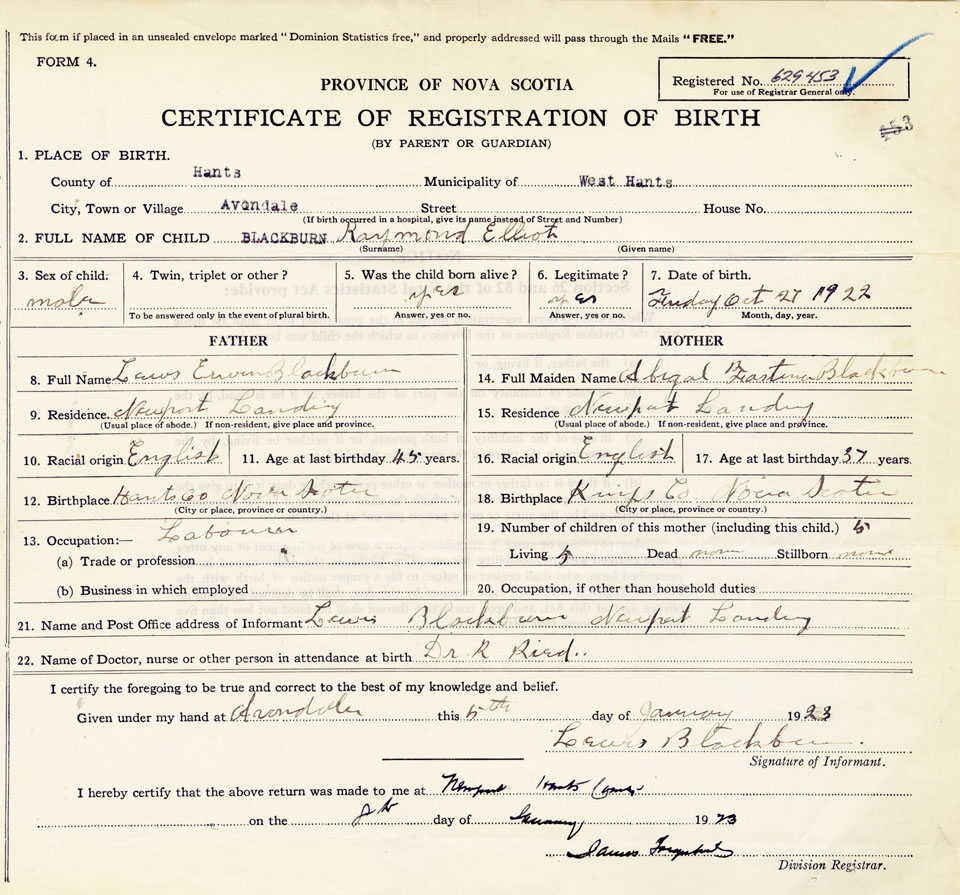 This form if placed in an unsealed envelope marked "Dominion Statistics free," and properly addressed will pass through the Mails "FREE."
FORM 4.
Registered No. 629453
For use of Registrar General only.
PROVINCE OF NOVA SCOTIA
CERTIFICATE OF REGISTRATION OF BIRTH
(BY PARENT OR GUARDIAN)
1. PLACE OF BIRTH.
County of Hants Municipality of West Hants
City, Town or Village Avondale Street House No.
(If birth occurred in a hospital, give its name instead of Street and Number)
2. FULL NAME OF CHILD BLACKBURN Raymond Elliot
(Surname) (Given name)
3. Sex of child. 4. Twin, triplet or other? 5. Was the child born alive? 6. Legitimate? 7. Date of birth.
male yes yes Friday Oct 27 1922
To be answered only in the event of plural birth. Answer, yes or no. Answer, yes or no. Month, day, year.
FATHER MOTHER
8. Full Name Lewis Erwin Blackburn
14. Full Maiden Name Abigal Blackburn
9. Residence. Newport Landing
15. Residence Newport Landing
(Usual place of abode.) If non-resident, give place and province.
(Usual place of abode.) If non-resident, give place and province.
10. Racial origin English 11. Age at last birthday 45 years.
16. Racial origin English 17. Age at last birthday 37 years.
12. Birthplace Hants Co Nova Scotia
18. Birthplace Kings Co. Nova Scotia
(City or place, province or country.)
(City or place, province or country.)
13. Occupation:— Labourer
19. Number of children of this mother (including this child.) 5
(a) Trade or profession
Living 5 Dead none Stillborn none
(b) Business in which employed
20. Occupation, if other than household duties
21. Name and Post Office address of Informant Lewis Blackburn Newport Landing
22. Name of Doctor, nurse or other person in attendance at birth Dr. R Ried..
I certify the foregoing to be true and correct to the best of my knowledge and belief.
Given under my hand at Avondale this 5th day of January 1923
Lewis Blackburn.
Signature of Informant.
I hereby certify that the above return was made to me at Newport Hants County
on the 8th day of January 1923
James
Division Registrar.